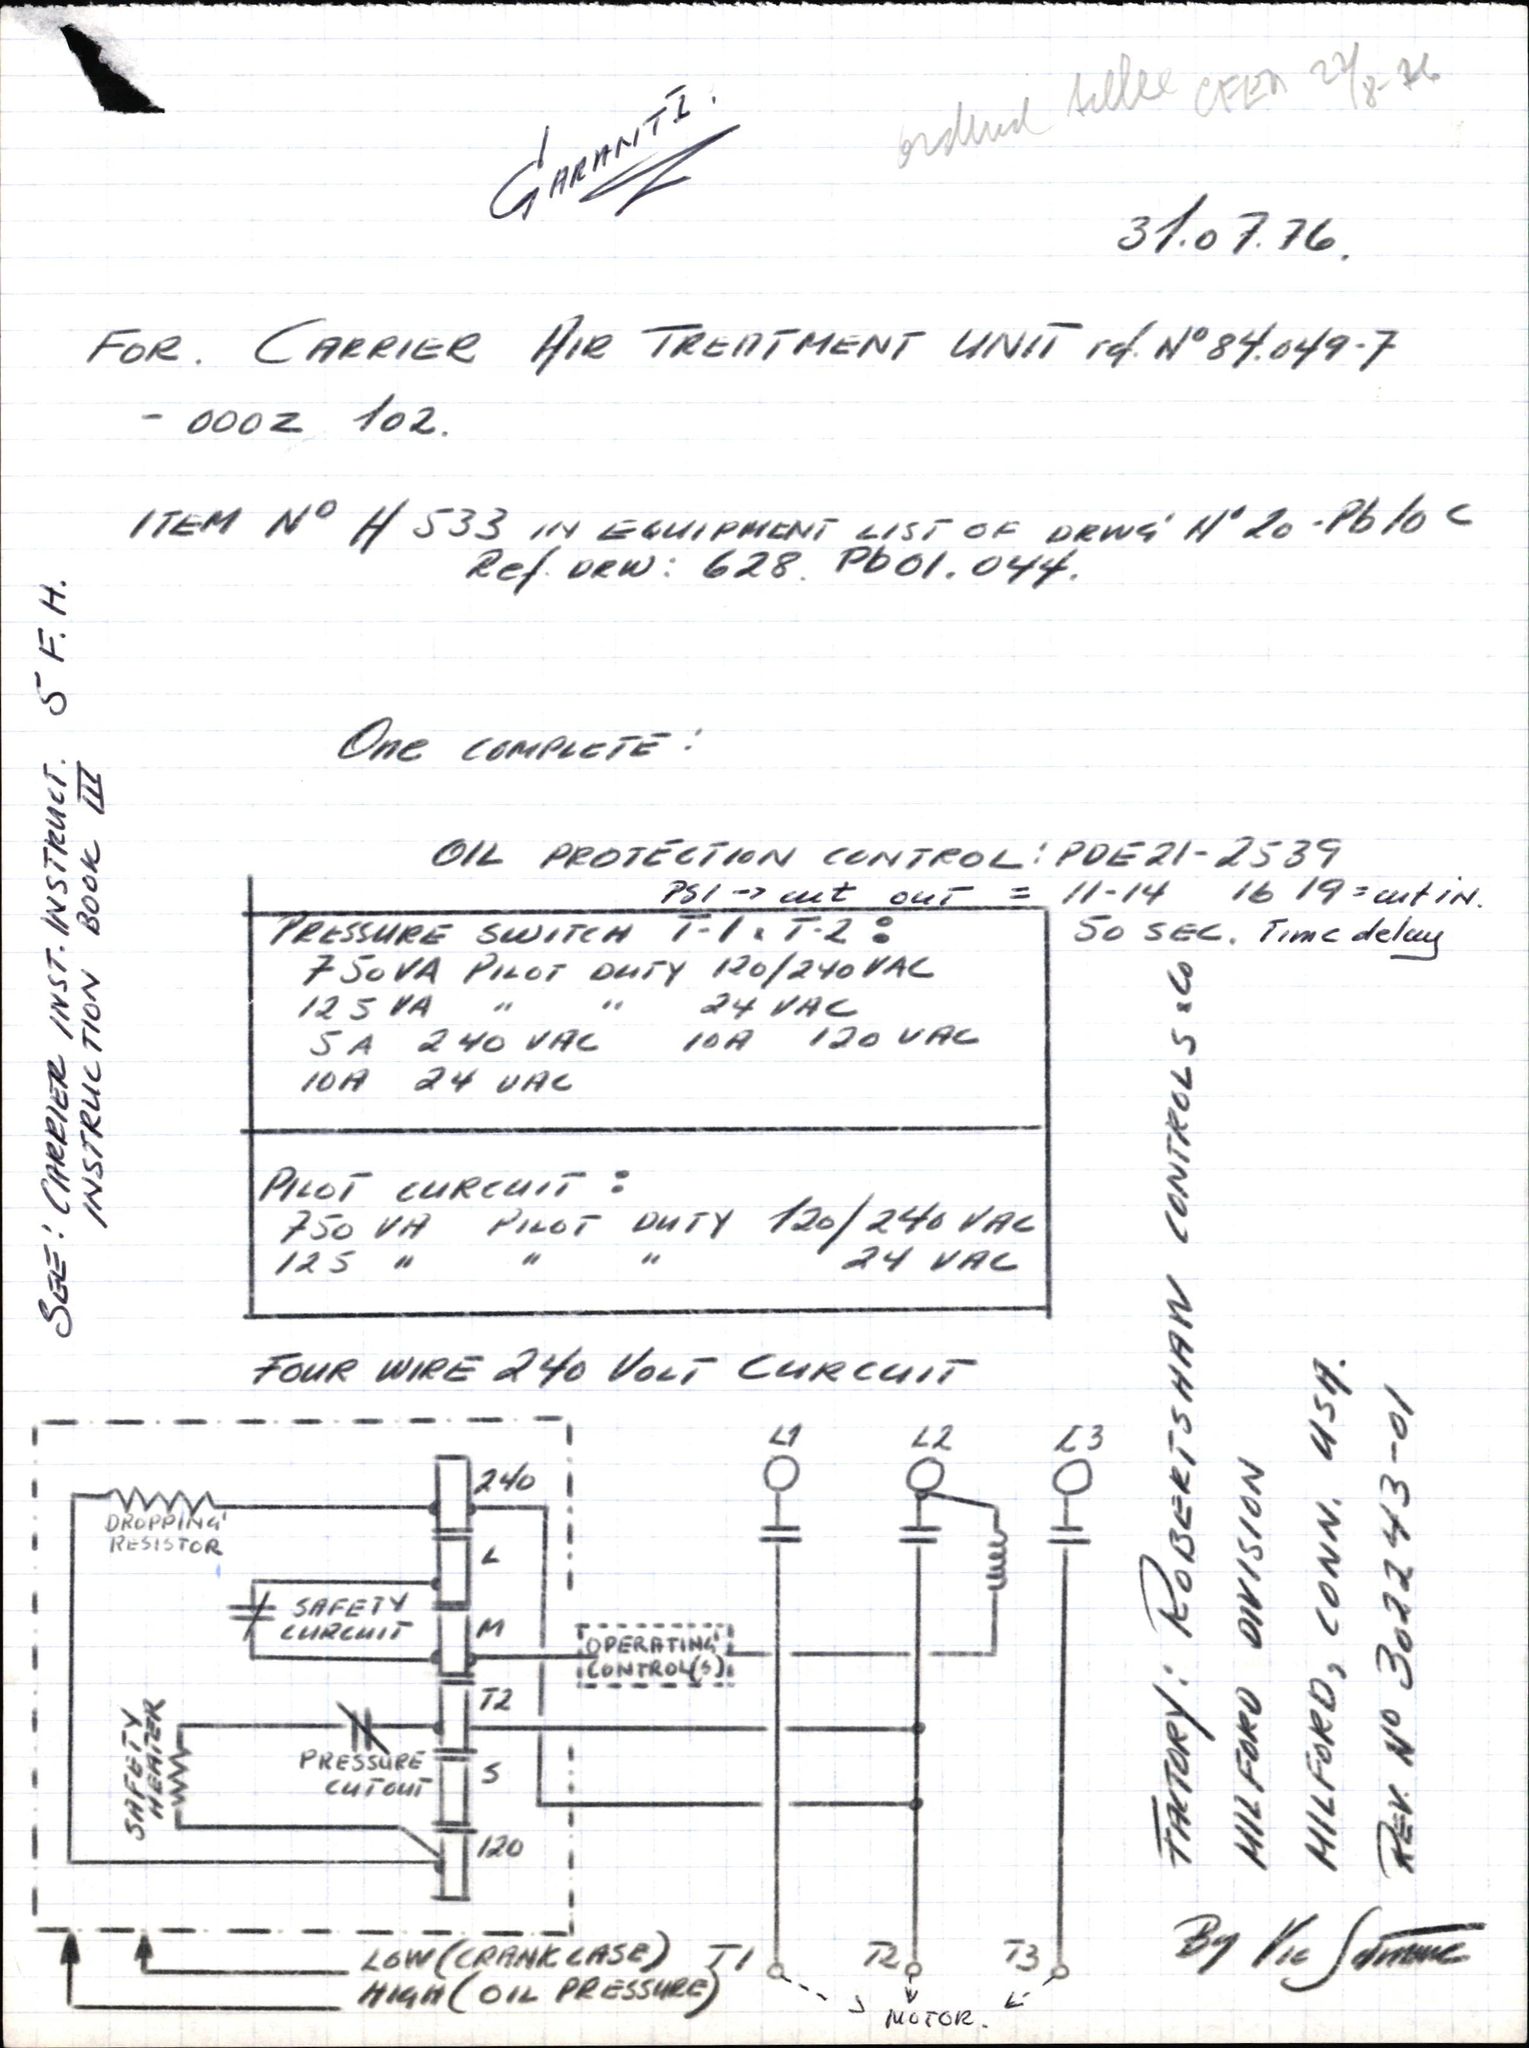 ordered CFEM 27/8-76
GARANTI.
31.07.76.
FOR. CARRIER AIR TREATMENT UNIT rd. Nº 84.049-7
- 000Z 102.
ITEM Nº H 533 IN EQUIPMENT LIST OF DRWG Nº 20-Pb10 C
Ref. DRW: 628. Pb01.044.
SEE: CARRIER INST. INSTRUCT. 5 F.H.
INSTRUCTION BOOK III
One COMPLETE:
OIL PROTECTION CONTROL: PDE21-2539
PSI → cut out = 11-14 16 19 = cut in.
50 SEC. Time delay
PRESSURE SWITCH T-1 & T-2:
750VA PILOT DUTY 120/240VAC
125 VA " " 24 VAC
5A 240 VAC 10A 120 VAC
10A 24 VAC
PILOT CURCUIT:
750 VA PILOT DUTY 120/240 VAC
125 " " " 24 VAC
FOUR WIRE 240 VOLT CURCUIT
240
DROPPING
RESISTOR
L
SAFETY
CURCUIT
M
OPERATING
CONTROL(S)
T2
SAFETY
HEATER
PRESSURE
CUTOUT
S
120
L1 L2 L3
LOW (CRANKCASE)
HIGH (OIL PRESSURE)
T1 T2 T3
MOTOR.
FACTORY: ROBERTSHAW CONTROLS & Co
MILFORD DIVISION
MILFORD, CONN. USA.
REV. Nº 302243-01
By Vic